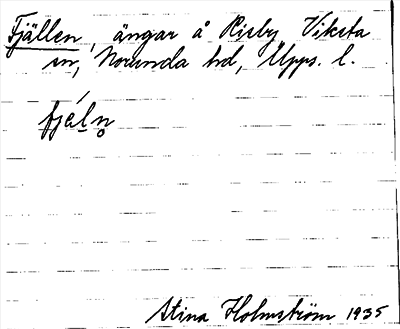 Fjällen, ängar å Risby Viksta
sn, Norunda hd, Upps. l.
fjéln̥
Stina Holmström 1935